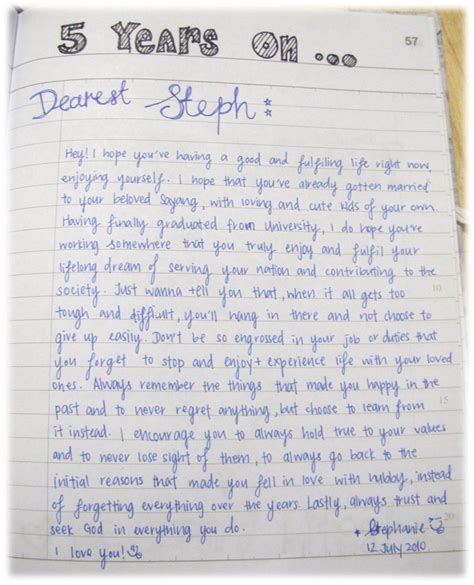 5 Years On...
57
Dearest Steph:
Hey! I hope you've having a good and fulfiling life right now,
enjoying yourself. I hope that you've already gotten married
to your beloved Sayang, with loving and cute kids of your own.
Having finally graduated from University, I do hope you're
working somewhere that you truly enjoy and fulfil your
lifelong dream of serving your nation and contributing to the
society. Just wanna tell you that, when it all gets too
tough and difficult, you'll hang in there and not choose to
give up easily. Don't be so engrossed in your job or duties that
you forget to stop and enjoy + experience life with your loved
ones. Always remember the things that made you happy in the
past and to never regret anything, but choose to learn from
it instead. I encourage you to always hold true to your values
and to never lose sight of them, to always go back to the
initial reasons that made you fell in love with hubby, instead
of forgetting everything over the years. Lastly, always trust and
seek God in everything you do.
Stephanie
I love you!
12 July 2010
10
15
20